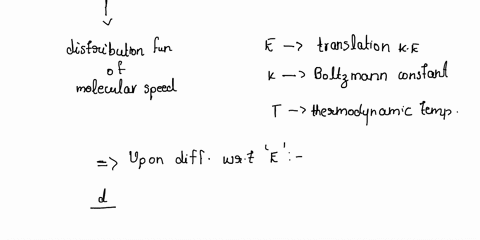 distribution fun
of
molecular speed
E -> translation K.E
K -> Boltzmann constant
T -> thermodynamic temp.
=> Upon diff. w.r.t 'E' :-
d